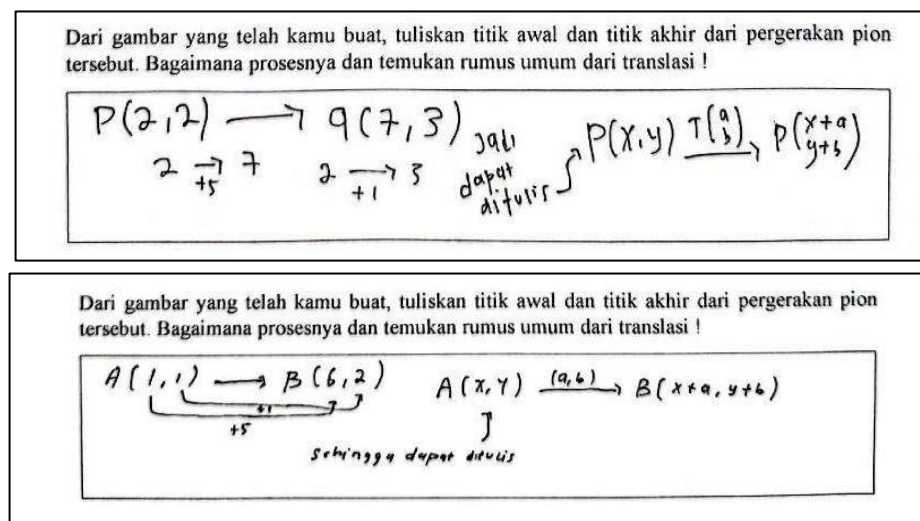 Dari gambar yang telah kamu buat, tuliskan titik awal dan titik akhir dari pergerakan pion
tersebut. Bagaimana prosesnya dan temukan rumus umum dari translasi !
P(2,2) → q(7,3)
2 → 7
+5
2 → 3
+1
Jadi
dapat
ditulis
P(x,y) T(a b) → P(x+a y+b)
Dari gambar yang telah kamu buat, tuliskan titik awal dan titik akhir dari pergerakan pion
tersebut. Bagaimana prosesnya dan temukan rumus umum dari translasi !
A(1,1) → B(6,2)
+1
+5
A(x,y) (a,b) → B(x+a, y+b)
Sehingga dapat ditulis